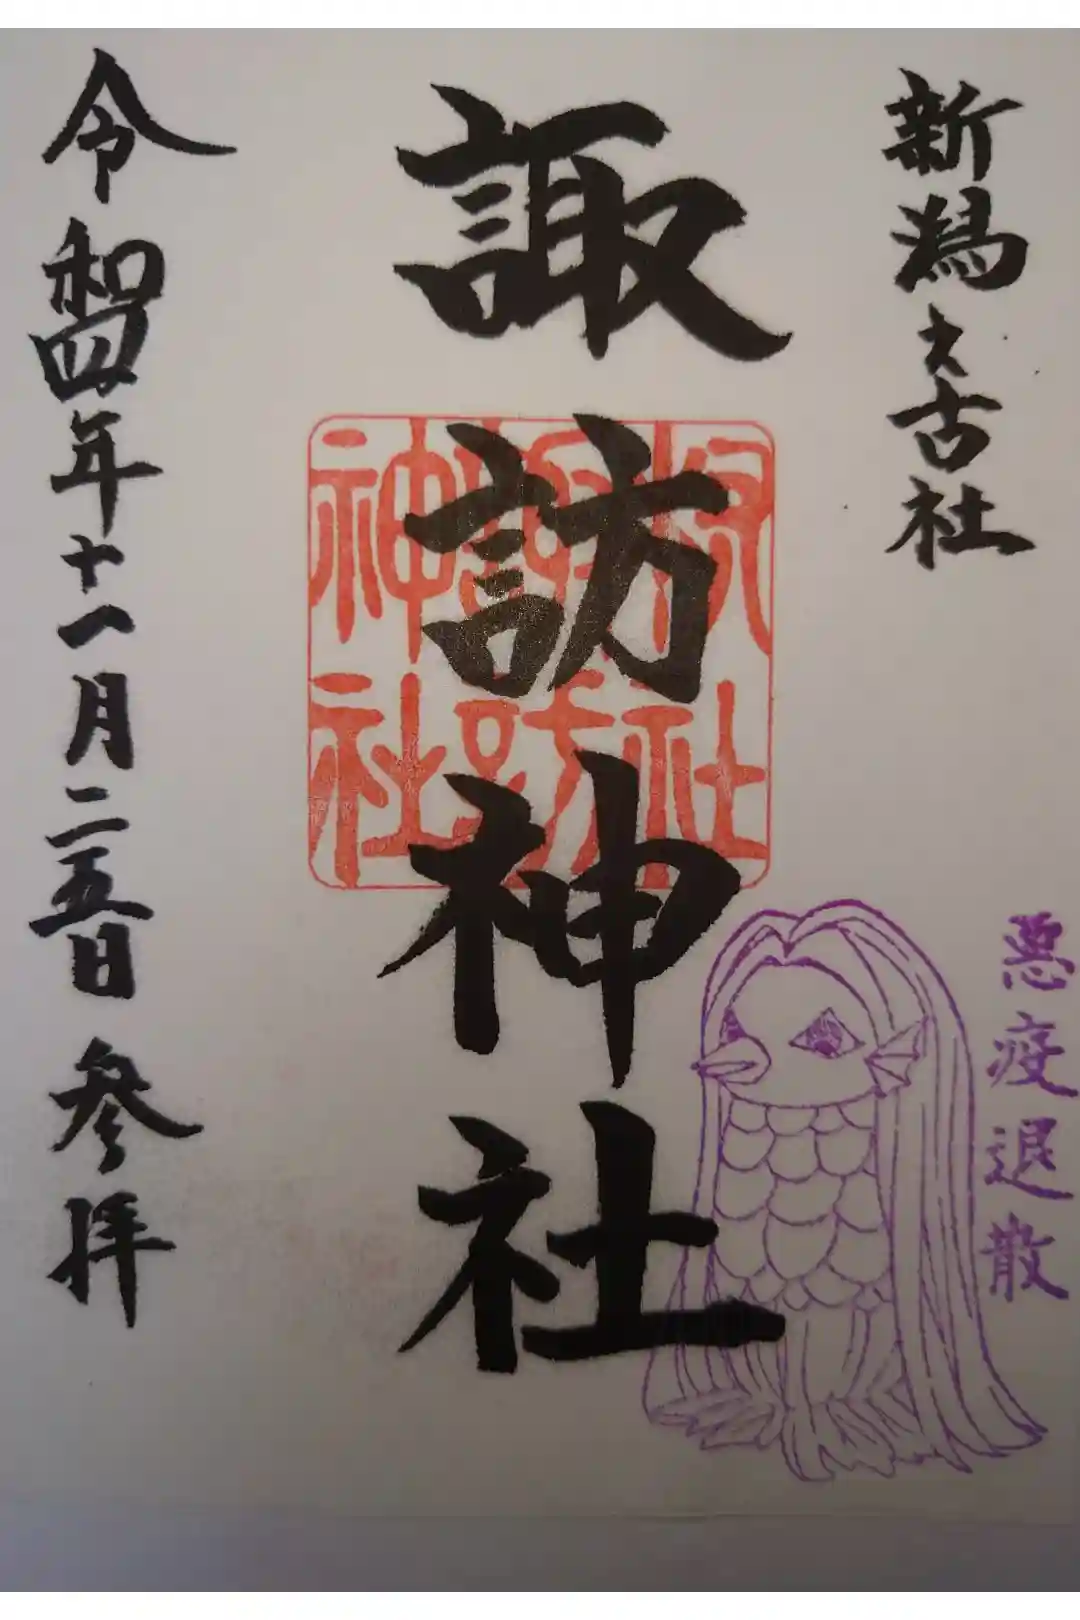 新潟之古社
諏訪神社
枚社
諏訪
神社
悪疫退散
令和四年十一月二五日 参拝